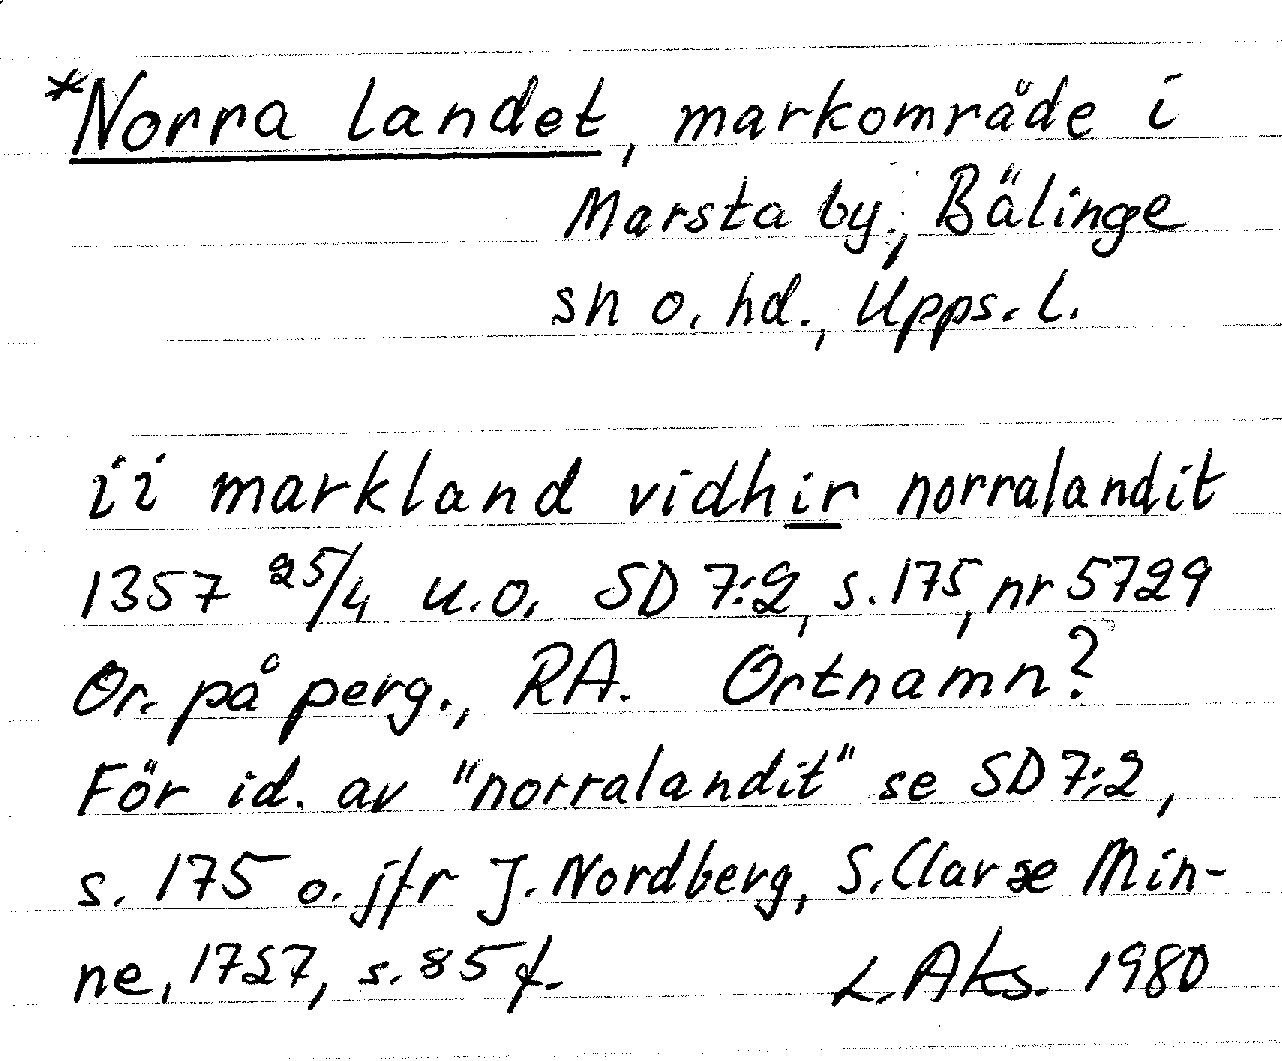 *Norra landet, markområde i
Marsta by, Bälinge
sn o. hd., Upps. l.
ii markland vidhir norralandit
1357 25/4 u.o. SD 7:2, s. 175, nr 5729
Or. på perg., RA. Ortnamn?
För id. av "norralandit" se SD 7:2,
s. 175 o. jfr J. Nordberg, S. Claræ Min-
ne, 1727, s. 85 f. L. Aks. 1980